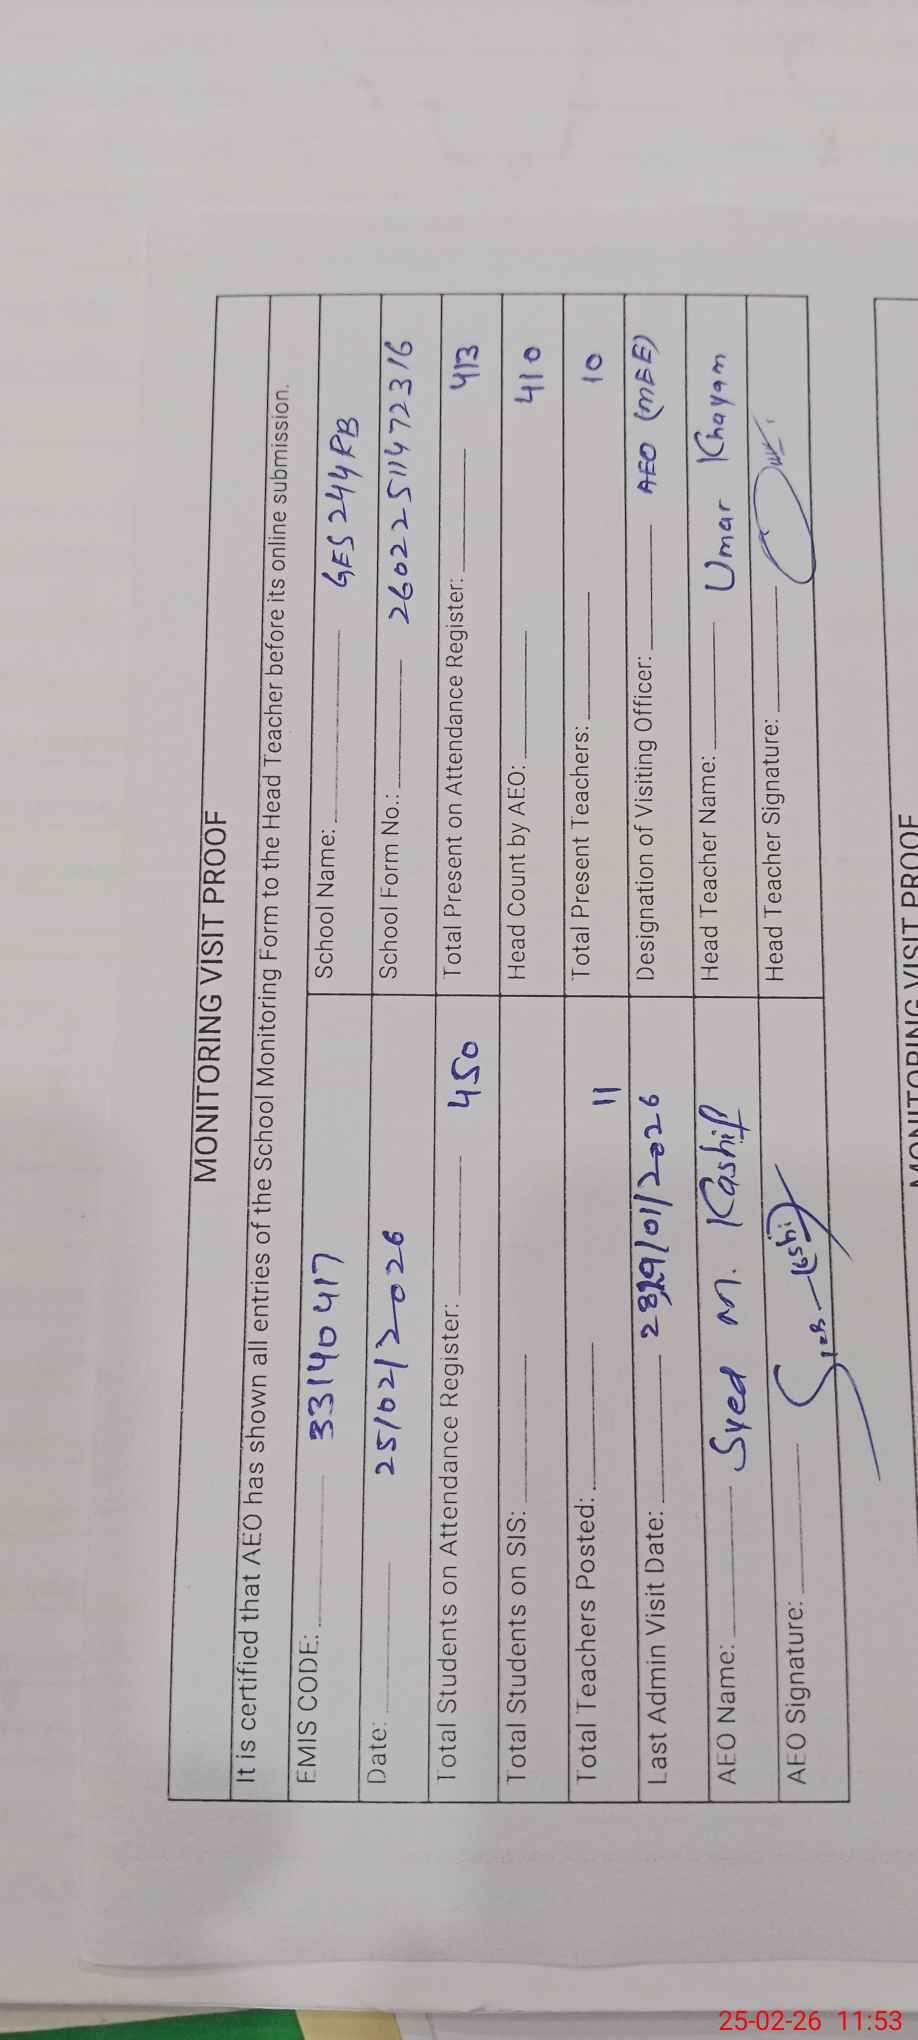 MONITORING VISIT PROOF
It is certified that AEO has shown all entries of the School Monitoring Form to the Head Teacher before its online submission.
EMIS CODE: 33140417 School Name: GES 244 RB
Date: 25/02/2026 School Form No.: 26022511472316
Total Students on Attendance Register: 450 Total Present on Attendance Register: 413
Total Students on SIS: Head Count by AEO: 410
Total Teachers Posted: 11 Total Present Teachers: 10
Last Admin Visit Date: 29/01/2026 Designation of Visiting Officer: AEO (MEE)
AEO Name: Syed M. Kashif Head Teacher Name: Umar Khayam
AEO Signature: Head Teacher Signature:
MONITORING VISIT PROOF
25-02-26 11:53